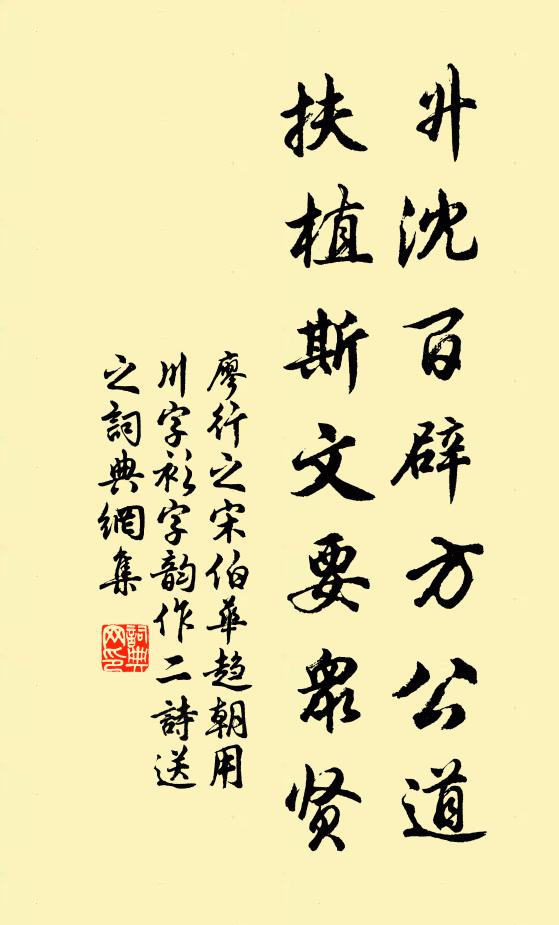 升沈百辟方公道
扶植斯文要眾贤
廖行之宋伯華趋朝用
川字衫字韵作二詩送
之詞典網集
詞典網印